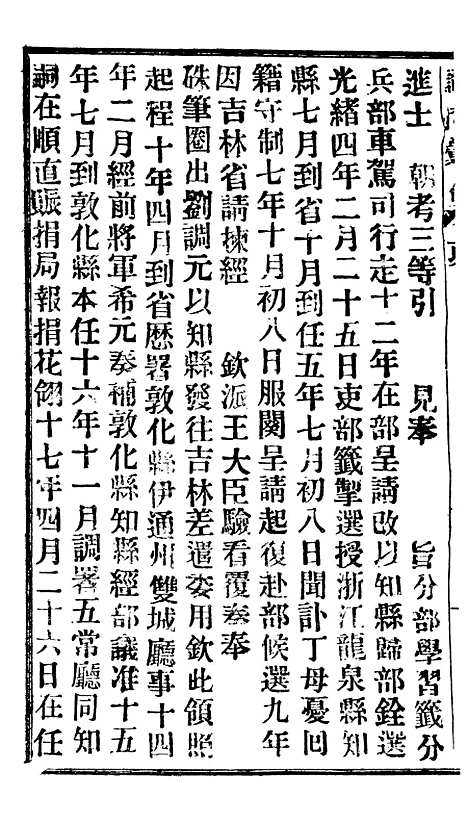 進士　朝考三等引　見奉　旨分部學習籤分
兵部車駕司行走十二年在部呈請改以知縣歸部銓選
光緒四年二月二十五日吏部籤掣選授浙江龍泉縣知
縣七月到省十月到任五年七月初八日聞訃丁母憂回
籍守制七年十月初八日服闋呈請起復赴部候選九年
因吉林省請揀經　欽派王大臣驗看覆奏奉
硃筆圈出劉調元以知縣發往吉林差遣委用欽此領照
起程十年四月到省歷署敦化縣伊通州雙城廳事十四
年二月經前將軍希元奏補敦化縣知縣經部議准十五
年七月到敦化縣本任十六年十一月調署五常廳同知
嗣在順直賑捐局報捐花翎十七年四月二十六日在任